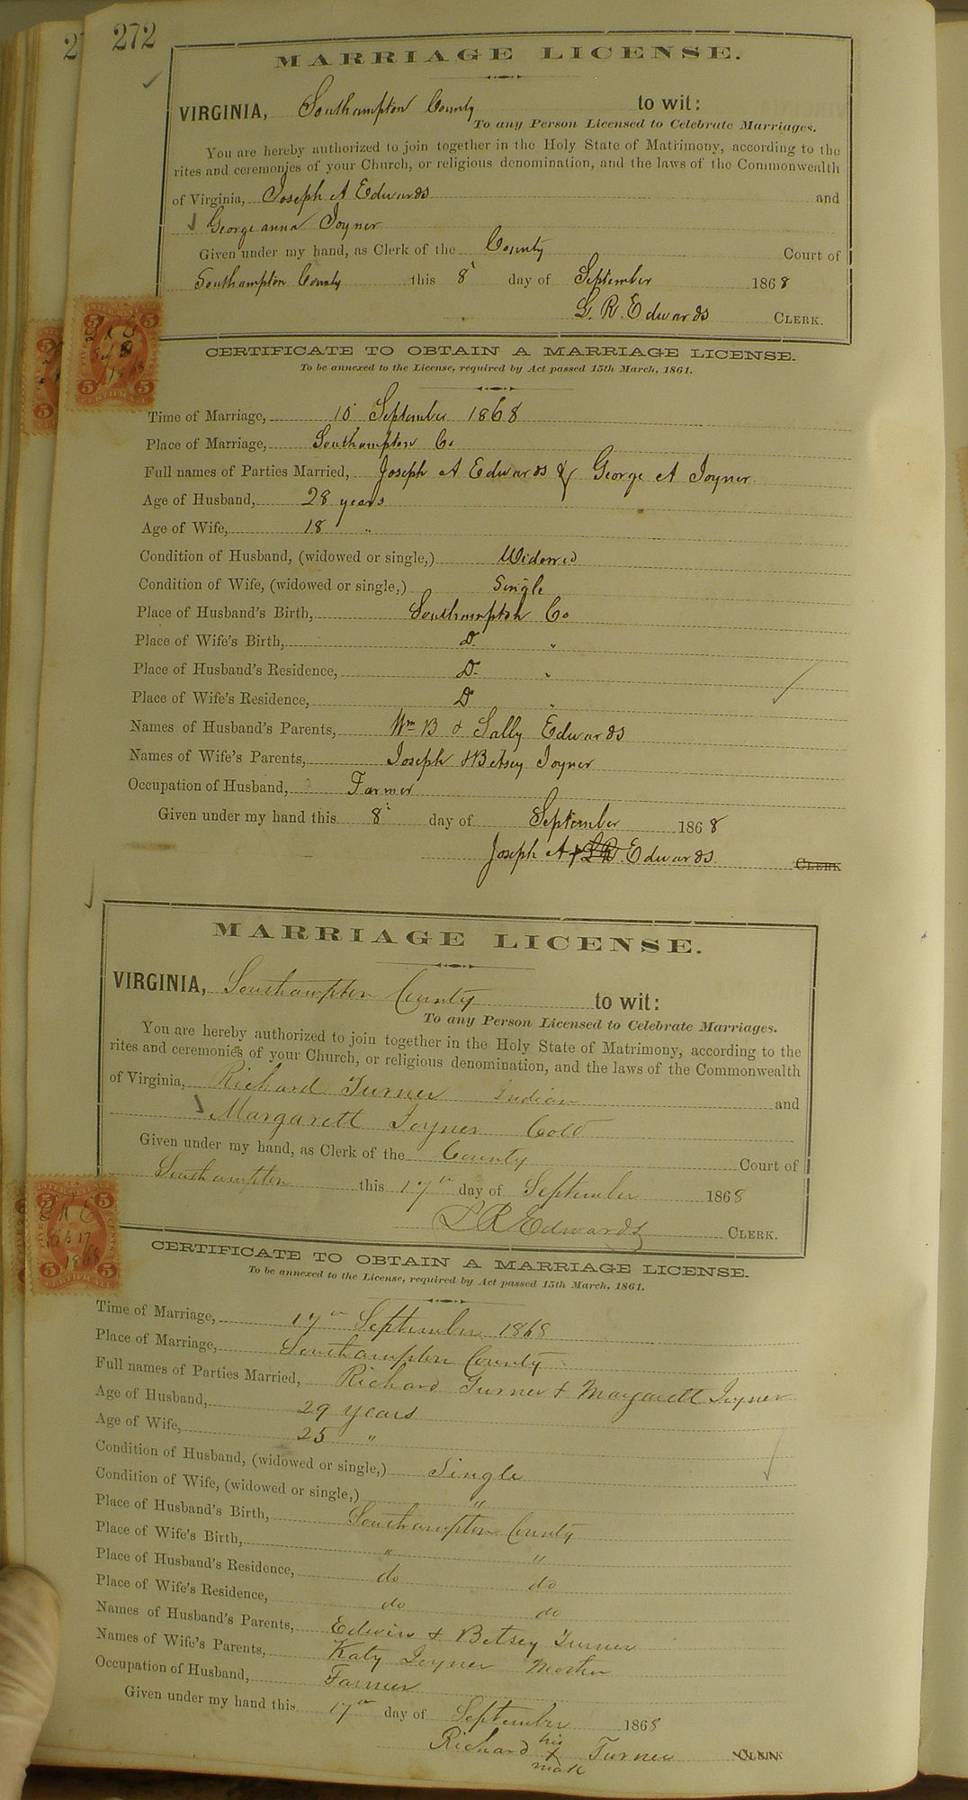 272
MARRIAGE LICENSE.
VIRGINIA, Southampton County to wit:
To any Person Licensed to Celebrate Marriages.
You are hereby authorized to join together in the Holy State of Matrimony, according to the
rites and ceremonies of your Church, or religious denomination, and the laws of the Commonwealth
of Virginia, Joseph A Edwards and
Georgeanna Joyner
Given under my hand, as Clerk of the County Court of
Southampton County this 8 day of September 1868
L. R. Edwards CLERK.
CERTIFICATE TO OBTAIN A MARRIAGE LICENSE.
To be annexed to the License, required by Act passed 15th March, 1861.
Time of Marriage, 10 September 1868
Place of Marriage, Southampton Co
Full names of Parties Married, Joseph A Edwards & George A Joyner
Age of Husband, 28 years
Age of Wife, 18 "
Condition of Husband, (widowed or single,) Widowed
Condition of Wife, (widowed or single,) Single
Place of Husband's Birth, Southampton Co
Place of Wife's Birth, D "
Place of Husband's Residence, D "
Place of Wife's Residence, D "
Names of Husband's Parents, Wm B & Sally Edwards
Names of Wife's Parents, Joseph & Betsey Joyner
Occupation of Husband, Farmer
Given under my hand this 8 day of September 1868
Joseph A Edwards CLERK
MARRIAGE LICENSE.
VIRGINIA, Southampton County to wit:
To any Person Licensed to Celebrate Marriages.
You are hereby authorized to join together in the Holy State of Matrimony, according to the
rites and ceremonies of your Church, or religious denomination, and the laws of the Commonwealth
of Virginia, Richard Turner Indian and
Margarett Joyner Cold
Given under my hand, as Clerk of the County Court of
Southampton this 17th day of September 1868
L R Edwards CLERK.
CERTIFICATE TO OBTAIN A MARRIAGE LICENSE.
To be annexed to the License, required by Act passed 15th March, 1861.
Time of Marriage, 17th September 1868
Place of Marriage, Southampton County
Full names of Parties Married, Richard Turner & Margarett Joyner
Age of Husband, 29 years
Age of Wife, 25 "
Condition of Husband, (widowed or single,) Single
Condition of Wife, (widowed or single,) "
Place of Husband's Birth, Southampton County
Place of Wife's Birth, " "
Place of Husband's Residence, do do
Place of Wife's Residence, do do
Names of Husband's Parents, Edwin & Betsey Turner
Names of Wife's Parents, Katy Joyner Mother
Occupation of Husband, Farmer
Given under my hand this 17th day of September 1868
Richard his x mark Turner CLERK